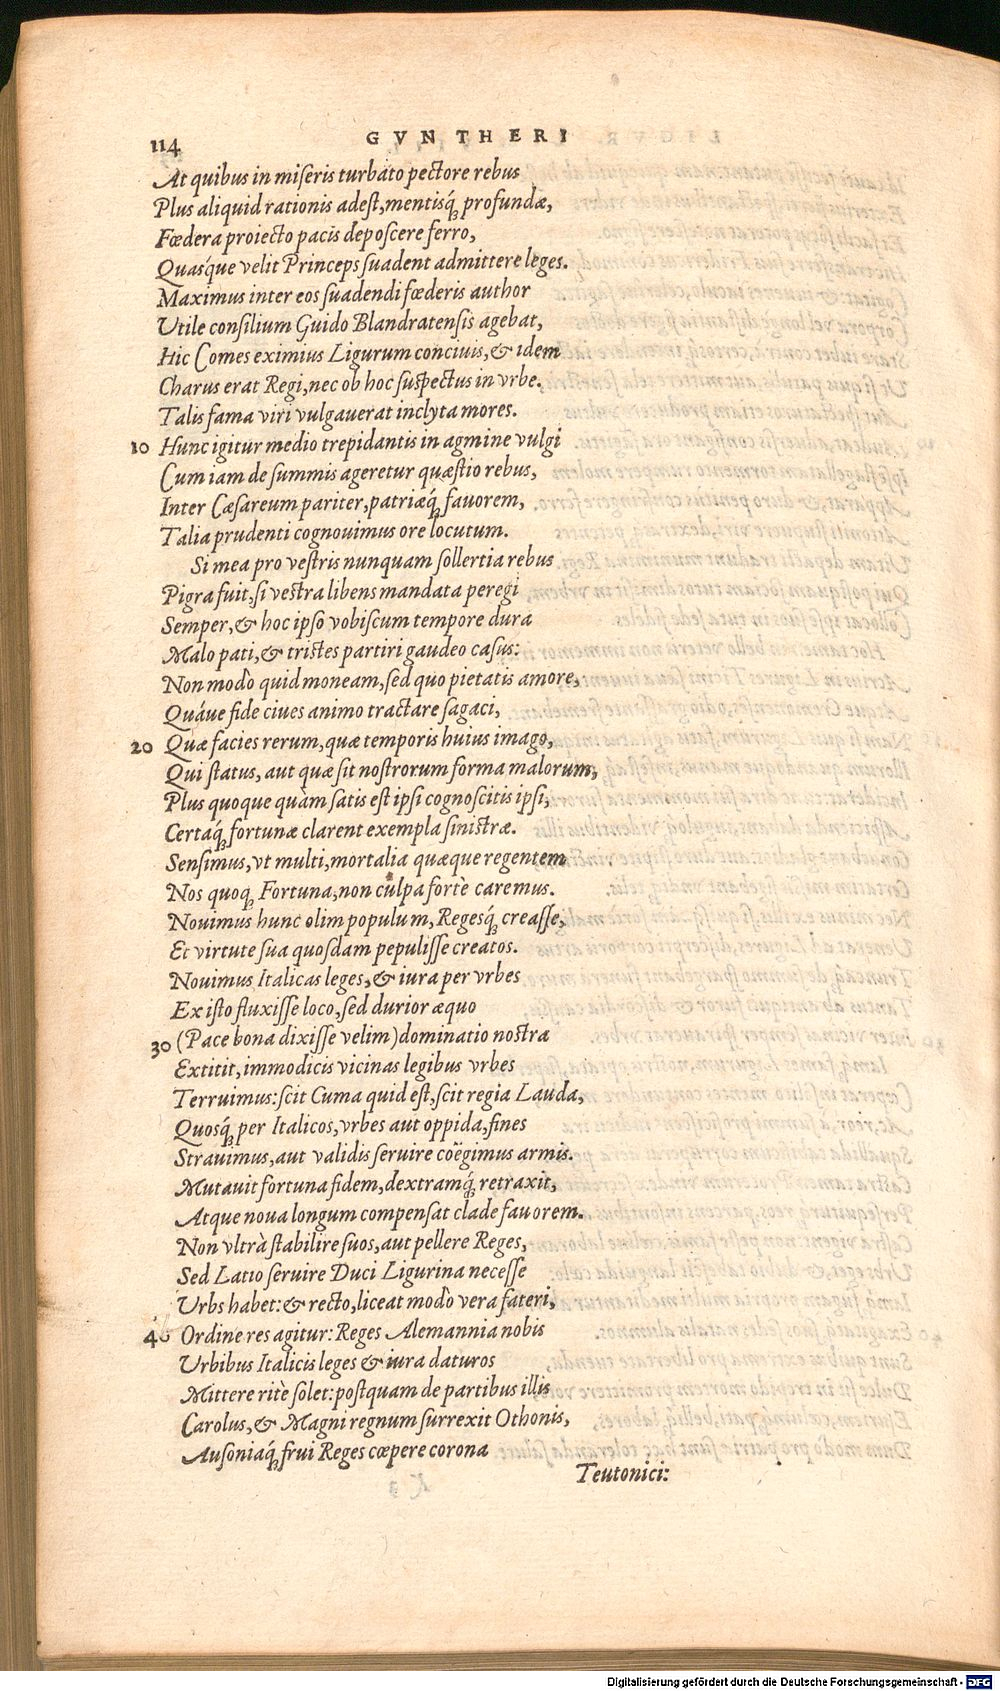 114
GVNTHERI
At quibus in miseris turbato pectore rebus
Plus aliquid rationis adest, mentisq́; profundæ,
Fœdera proiecto pacis deposcere ferro,
Quasq́ue velit Princeps suadent admittere leges.
Maximus inter eos suadendi fœderis author
Vtile consilium Guido Blandratensis agebat,
Hic Comes eximius Ligurum conciuis, & idem
Charus erat Regi, nec ob hoc suspectus in vrbe.
Talis fama viri vulgauerat inclyta mores.
10 Hunc igitur medio trepidantis in agmine vulgi
Cum iam de summis ageretur quæstio rebus,
Inter Cæsareum pariter, patriæq́; fauorem,
Talia prudenti cognouimus ore locutum.
Si mea pro vestris nunquam sollertia rebus
Pigra fuit, si vestra libens mandata peregi
Semper, & hoc ipso vobiscum tempore dura
Malo pati, & tristes partiri gaudeo casus:
Non modò quid moneam, sed quo pietatis amore,
Quáue fide ciues animo tractare sagaci,
20 Quæ facies rerum, quæ temporis huius imago,
Qui status, aut quæ sit nostrorum forma malorum,
Plus quoque quàm satis est ipsi cognoscitis ipsi,
Certaq́; fortunæ clarent exempla sinistræ.
Sensimus, vt multi, mortalia quæque regentem
Nos quoq; Fortuna, non culpa fortè caremus.
Nouimus hunc olim populum, Regesq́; creasse,
Et virtute sua quosdam pepulisse creatos.
Nouimus Italicas leges, & iura per vrbes
Ex isto fluxisse loco, sed durior æquo
30 (Pace bona dixisse velim) dominatio nostra
Extitit, immodicis vicinas legibus vrbes
Terruimus: scit Cuma quid est, scit regia Lauda,
Quosq́; per Italicos, vrbes aut oppida, fines
Strauimus, aut validis seruire coëgimus armis.
Mutauit fortuna fidem, dextramq́; retraxit,
Atque noua longum compensat clade fauorem.
Non vltrà stabilire suos, aut pellere Reges,
Sed Latio seruire Duci Ligurina necesse
Vrbs habet: & recto, liceat modò vera fateri,
40 Ordine res agitur: Reges Alemannia nobis
Vrbibus Italicis leges & iura daturos
Mittere ritè solet: postquam de partibus illis
Carolus, & Magni regnum surrexit Othonis,
Ausoniaq́; frui Reges cœpere corona
Teutonici:
Digitalisierung gefördert durch die Deutsche Forschungsgemeinschaft - DFG